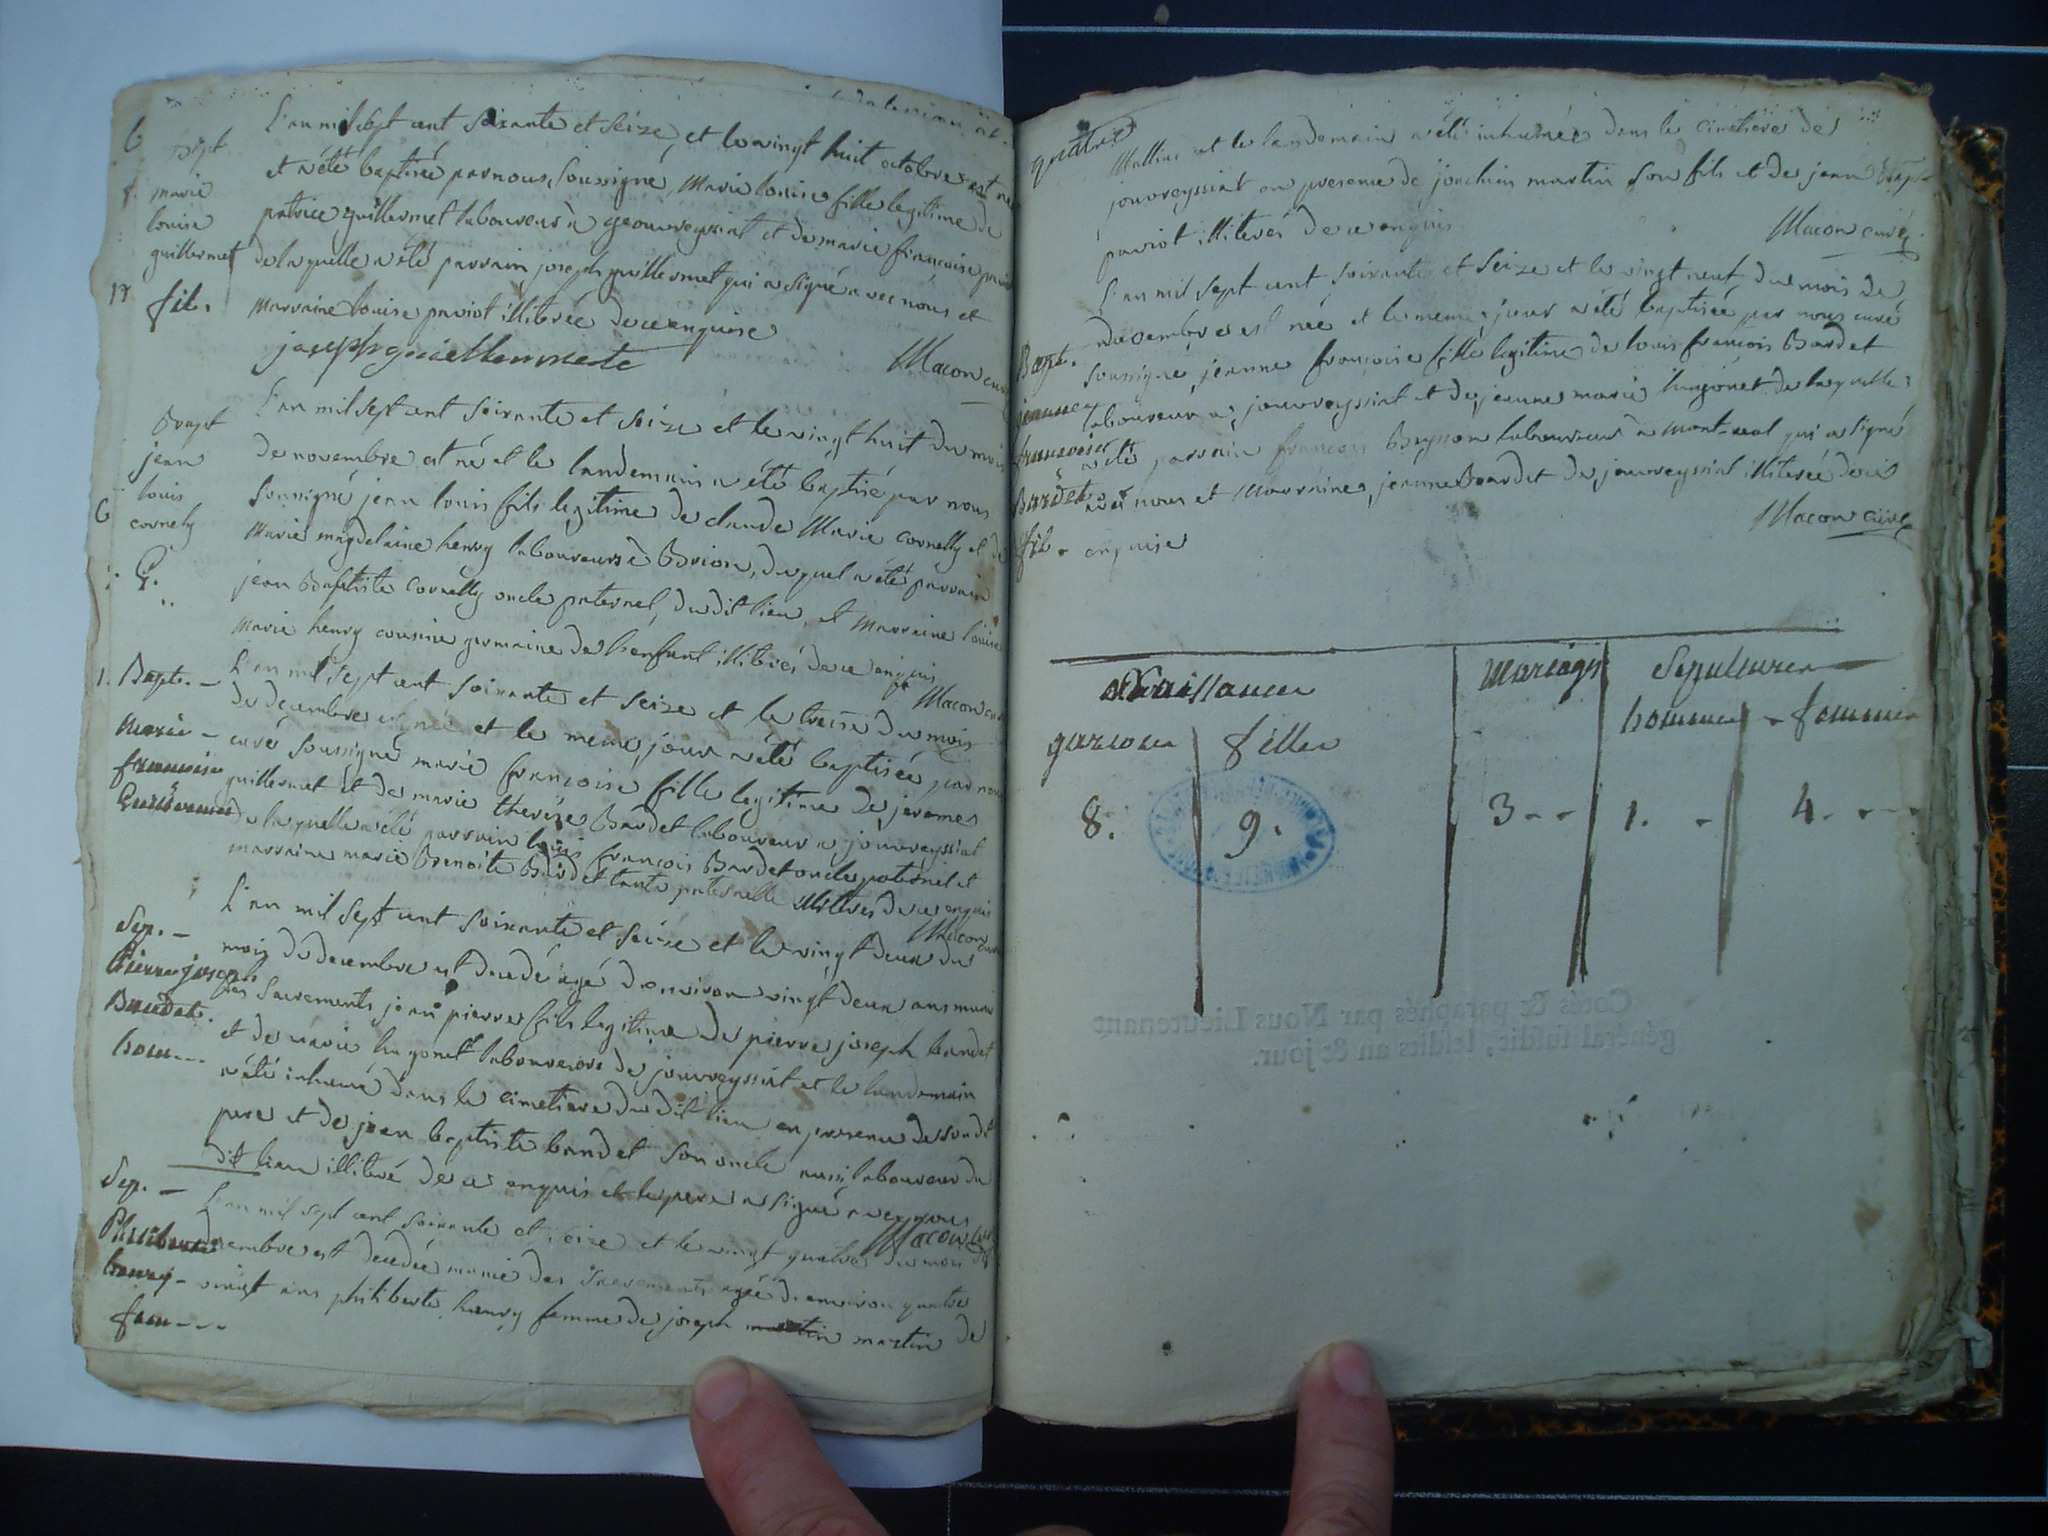 L'an mil sept cent soixante et seize, et le vingt huit octobre est né
et a été baptisée par nous soussigné, Marie louise fille legitime de
patrice guillermet laboureur a geouvreyssiat et de marie françoise
de laquelle a été parrain joseph guillermet qui a signé avec nous et
marraine louise paviot illitérée de ce enquise
joseph guiellermete
Macon curé
Bapt
marie
louise
guillermet
fil.
L'an mil sept cent soixante et seize et le vingt huit du mois
de novembre est né et le landemain a été baptisé par nous
soussigné jean louis fils legitime de claude Marie cornelly et de
Marie magdelaine henry laboureurs a Brion, duquel a été parrain
jean Baptiste Cornelly oncle paternel, du dit lieu, et Marraine louise
marie henry cousine germaine de l'enfant illiterés de ce enquis
Macon curé
Bapt
jean
louis
cornely
G.
L'an mil sept cent soixante et seize et le treise du mois
de decembre est née et le meme jour a été baptisée par nous
curé soussigné marie françoise fille legitime de jerome
guillermet et de marie therèse Bardet laboureur a jouvreyssiat
de laquelle a été parrain louis françois Bardet oncle paternel et
marraine marie Benoite Bardet tante paternelle illiterés de ce enquis
Macon curé
1. Bapt. -
marie -
francoise
Guillermet
L'an mil sept cent soixante et seize et le vingt deux du
mois de decembre est decedé agé d'environ vingt deux ans muni
des Sacrements jean pierre fils legitime de pierre joseph bandet
et de marie hugonet laboureurs de jouvreyssiat et le landemain
a été inhumé dans le cimetiere du dit lieu en presence de son dit
pere et de jean baptiste bandet son oncle aussi laboureur du
dit lieu illiteré de ce enquis et le pere a signé avec nous
Macon curé
Sep. -
Pierre joseph
Baudet.
hom---
L'an mil sept cent soixante et seize et le vingt quatre du mois de
decembre est decedée munie des Sacrements agée d'environ quatre
vingt ans philiberte henry femme de joseph martin martin de
Sep. -
Philiberte
henry -
fem---
quatre
Mattiae et le landemain a été inhumée dans le cimetiere de
jouvreyssiat en presence de joachim martin son fils et de jean
paviot illiterés de ce enquis
Macon curé
L'an mil sept cent soixante et seize et le vingt neuf du mois de
decembre est née et le meme jour a été baptisée par nous curé
soussigné jeanne françoise fille legitime de louis françois Bardet
laboureur a jouvreyssiat et de jeanne marie hugonet de laquelle
a été parrain françois Beysson laboureur a Mont-real qui a signé
avec nous et Marraine, jeanne Bardet de jouvreyssiat illiterée de ce
enquise
Macon curé
Bapt.
jeanne
francoise
Bardet
fil.
Naissances
Mariages
Sepultures
garcons
filles
hommes - femmes
8.
9.
3--
1. -
4. ---
Cotés & paraphés par Nous Lieutenant
général susdit, lesdits an & jour.